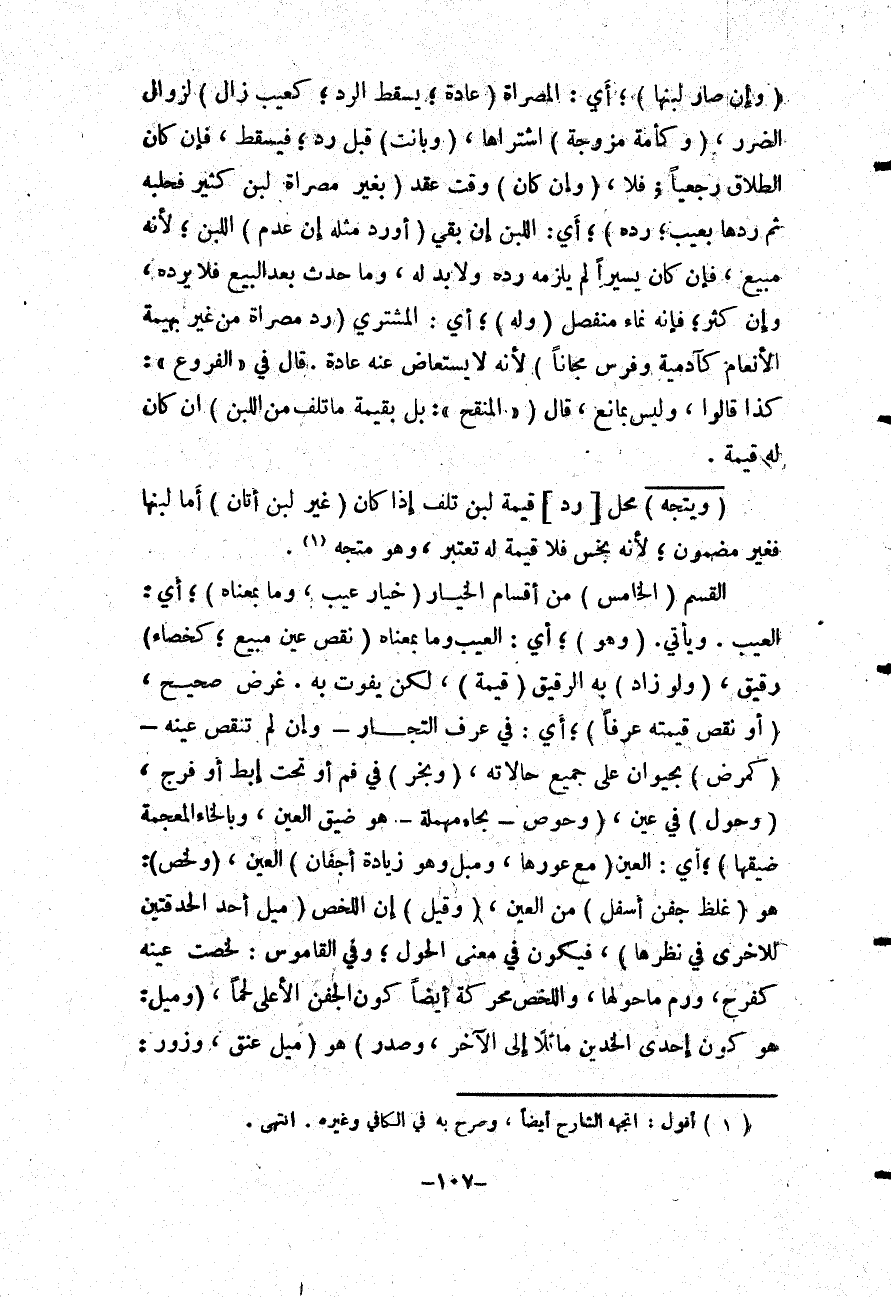 ( وإن صار لبنها ) ؛ أي : المصراة ( عادة ؛ يسقط الرد ؛ كعيب زال ) لزوال
الضرر ، ( وكأمة مزوجة ) اشتراها ، ( وبانت ) قبل رد ؛ فيسقط ، فإن كان
الطلاق رجعياً ؛ فلا ، ( وإن كان ) وقت عقد ( بغير مصراة لبن كثير فحلبه
ثم ردها بعيب ؛ رده ) ؛ أي : اللبن إن بقي ( أورد مثله إن عدم ) اللبن ؛ لأنه
مبيع ، فإن كان يسيراً لم يلزمه رده ولابد له ، وما حدث بعد البيع فلا يرده ،
وإن كثر ؛ فإنه نماء منفصل ( وله ) ؛ أي : المشتري ( رد مصراة من غير بهيمة
الأنعام كآدمية وفرس مجاناً ) لأنه لا يستعاض عنه عادة . قال في « الفروع » :
كذا قالوا ، وليس بمانع ، قال ( « المنقح » : بل بقيمة ما تلف من اللبن ) ان كان
له قيمة .
( ويتجه ) محل [ رد ] قيمة لبن تلف إذا كان ( غير لبن أتان ) أما لبنها
فغير مضمون ؛ لأنه نجس فلا قيمة له تعتبر ، وهو متجه (١) .
القسم ( الخامس ) من أقسام الخيار ( خيار عيب ، وما بمعناه ) ؛ أي :
العيب . ويأتي . ( وهو ) ؛ أي : العيب وما بمعناه ( نقص عين مبيع ؛ كخصاء )
رقيق ، ( ولو زاد ) به الرقيق ( قيمة ) ، لكن يفوت به . غرض صحيح ،
( أو نقص قيمته عرفاً ) ؛ أي : في عرف التجار – وإن لم تنقص عينه –
( كمرض ) بحيوان على جميع حالاته ، ( وبخر ) في فم أو تحت إبط أو فرج ،
( وحول ) في عين ، ( وحوص – بحاء مهملة – هو ضيق العين ، وبالخاء المعجمة
ضيقها ) ؛ أي : العين ( مع عورها ، وسبل وهو زيادة أجفان ) العين ، ( ولخص ) :
هو ( غلظ جفن أسفل ) من العين ، ( وقيل ) إن اللخص ( ميل أحد الحدقتين
للاخرى في نظرها ) ، فيكون في معنى الحول ؛ وفي القاموس : لخصت عينه
كفرح ، ورم ما حولها ، واللخص محركة أيضاً كون الجفن الأعلى لحماً ، ( وميل :
هو كون إحدى الخدين مائلًا إلى الآخر ، وصدر ) هو ( ميل عنق ، وزور :
( ١ ) أقول : اتجهه الشارح أيضاً ، وصرح به في الكافي وغيره . انتهى .
-١٠٧-